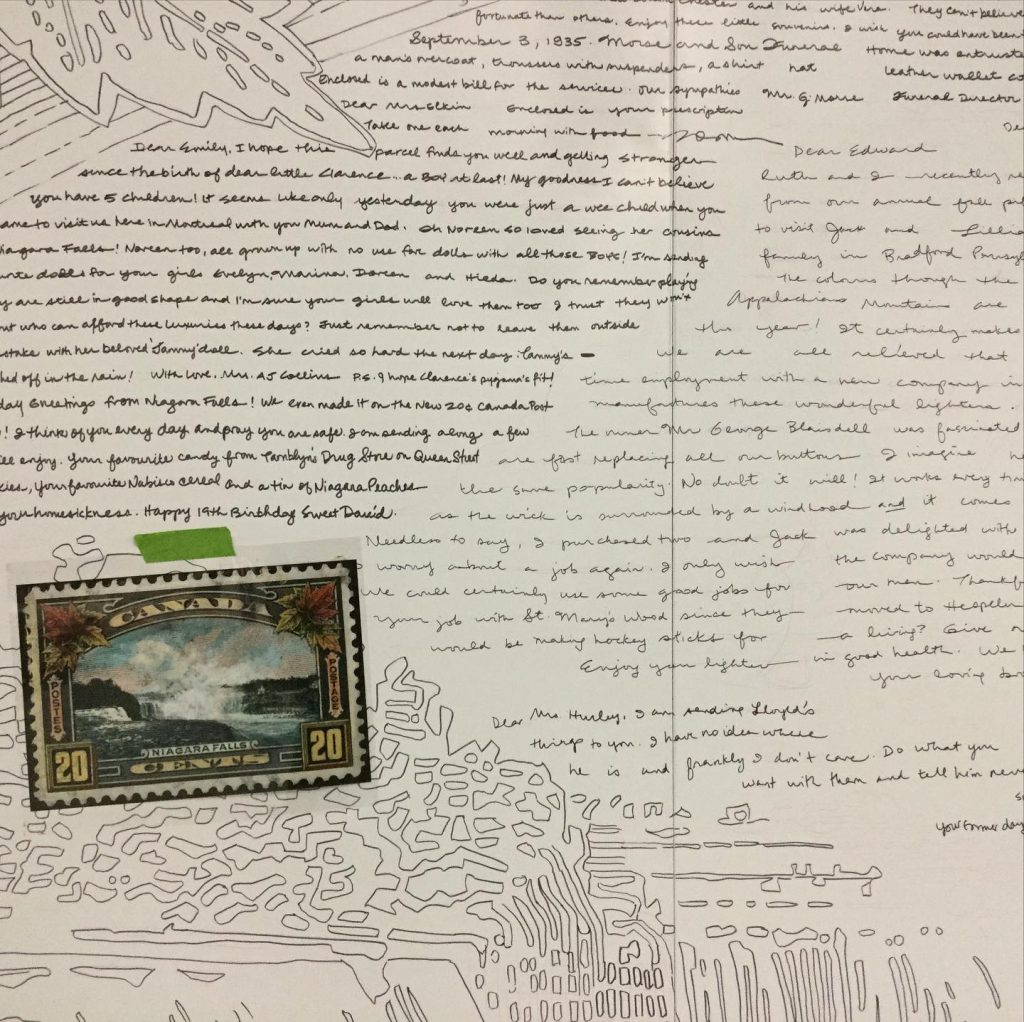 Chester and his wife Vera. They can't believe
fortunate than others. Enjoy these little souvenirs. I wish you could have been
September 3, 1935. Morse and Son Funeral Home was entruste
a man's overcoat, troussers with suspenders, a shirt hat leather wallet co
Enclosed is a modest bill for the services. Our sympathies Mr. G. Morse Funeral Director
Dear Mrs Elkin Enclosed is your prescription
De
Take one each mourning with food
Dear Emily, I hope this parcel finds you well and getting stronger
since the birth of dear little Clarence... a BOY at last! My goodness I can't believe
you have 5 children! It seems like only yesterday you were just a wee child when you
ame to visit us here in Montreal with you Mum and Dad. Oh Noreen so loved seeing her cousins
iagara Falls! Noreen too, all grown up with no use for dolls with all those BOYS! I'm sending
urite dolls for your girls Evelyn, Marina, Doreen and Hilda. Do you remember playing
y are still in good shape and I'm sure your girls will love them too I trust they won't
nt who can afford these luxuries these days? Just remember not to leave them outside
stake with her beloved 'Tammy' doll. She cried so hard the next day. Tammy's
hed off in the rain! With Love. Mrs. AJ Collins P.S. I hope Clarence's pyjama's fit!
day Greetings from Niagara Falls! We even made it on the New 20¢ Canada Post
! I think of you every day and pray you are safe. I am sending along a few
ll enjoy. Your favourite candy from Tamblyn's Drug Store on Queen Street
kies, your favourite Nabisco cereal and a tin of Niagara Peaches
your homesickness. Happy 19th Birthday Sweet David.
Dear Edward
Ruth and I recently re
from our annual fall
to visit Jack and Lillia
family in Bradford Pennsyl
The colours through the
Appalachians Mountain are
this year! It certainly makes
We are all relieved that
time employment with a new company in
manufactures these wonderful lighters.
The owner Mr George Blaisdell was fascinated
are fast replacing all our buttons I imagine he
the same popularity. No doubt it will! It works every tim
as the wick is surrounded by a windhood and it comes
Needless to say, I purchased two and Jack was delighted with
worry about a job again. I only wish the company would
We could certainly use some good jobs for our men. Thankf
your job with St. Mary's Wood since they moved to Hespeler
would be making hockey sticks for a living? Give
Enjoy your lighter in good health. We
your loving
Dear Mrs. Hurley, I am sending Lloyd's
things to you. I have no idea where
he is and frankly I don't care. Do what you
want with them and tell him never
your former day
CANADA
POSTES
POSTAGE
NIAGARA FALLS
20 CENTS 20